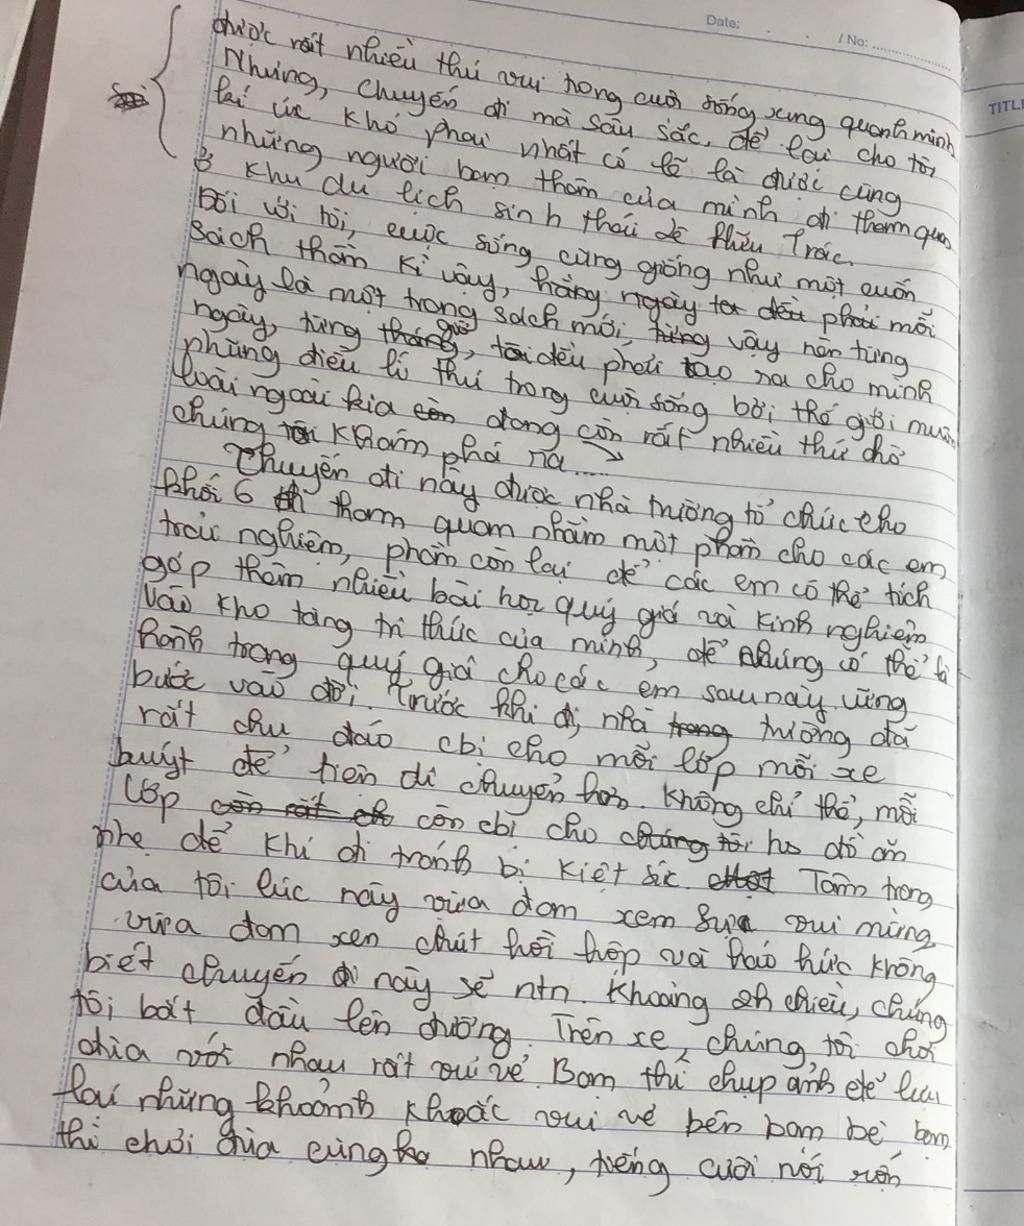 Date:
/ No:
TITLE
được rất nhiều thú vui trong cuộc sống xung quanh mình
Nhưng, chuyến đi mà sâu sắc, để lại cho tôi
kí ức khó phai nhất có lẽ là được cùng
những người bạn thân của mình đi tham quan
ở khu du lịch sinh thái
Đối với tôi, cuộc sống cũng giống như một cuốn
sách thần kì vậy, hằng ngày ta đều phải mỗi
ngày là một trang sách mới, vậy nên từng
ngày, từng giờ, tôi đều phải tạo ra cho mình
những điều lí thú trong cuộc sống bởi thế giới muôn
loài ngoài kia đang còn rất nhiều thứ chờ
chúng tôi khám phá ra....
Chuyến đi này được nhà trường tổ chức cho
khối 6 đi tham quan nhằm một phần cho các em
trải nghiệm, phần còn lại để các em có thể tích
góp thêm nhiều bài học quý giá và kinh nghiệm
vào kho tàng tri thức của mình, để chúng có thể là
hành trang quý giá cho các em sau này vững
bước vào đời. Trước khi đi, nhà trang trường đã
rất chu đáo cbị cho mỗi lớp mỗi xe
buýt để tiện di chuyển hơn. Không chỉ thế, mỗi
lớp còn rất ch còn cbị cho chúng tôi hs đồ ăn
nhẹ để khi đi tránh bị kiệt sức. Một Tâm trạng
của tôi lúc này vừa đan xem sự vui mừng,
vừa đan xen chút hồi hộp và háo hức không
biết chuyến đi này sẽ ntn. Khoảng 2h chiều, chúng
tôi bắt đầu lên đường. Trên xe, chúng tôi chơi
đùa với nhau rất vui vẻ. Bạn thì chụp ảnh để lưu
lại những khoảnh khoắc vui vẻ bên bạn bè, bạn
thì chơi đùa cùng nhau, tiếng cười nói rộn